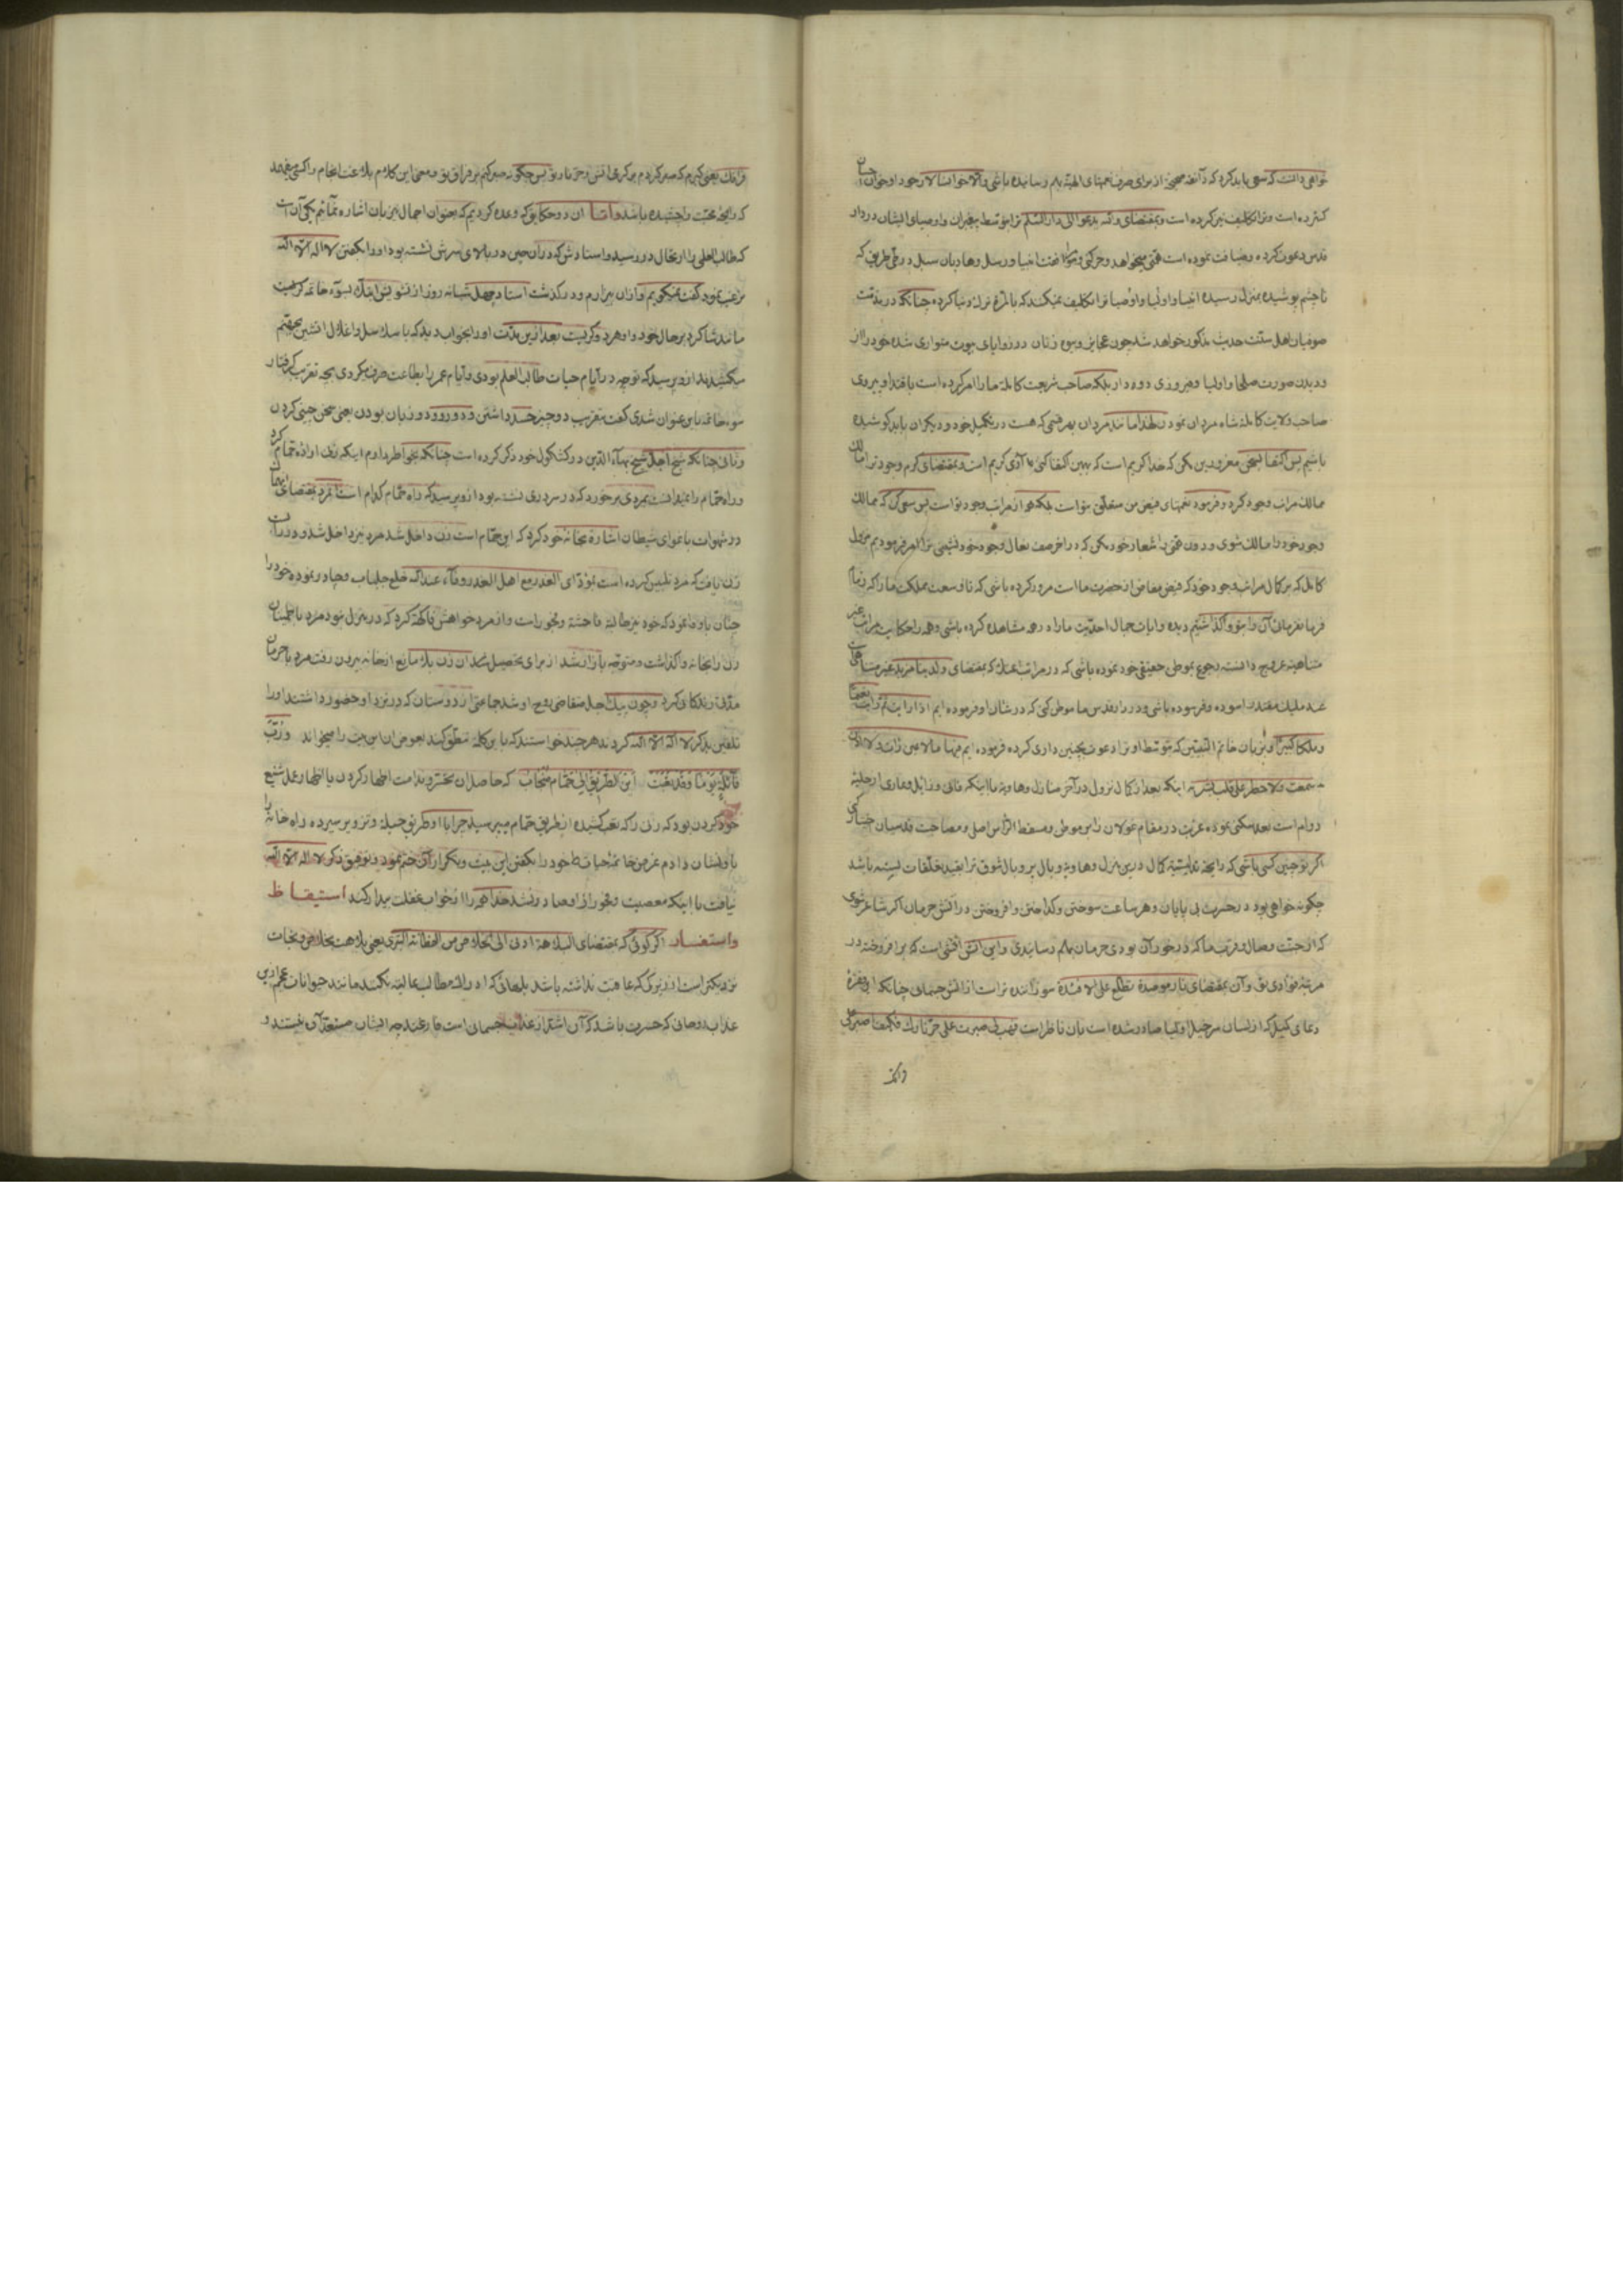 خواهی دانست که سعی باید کرد که در آنچه صحیح از برای صرف نعمتهای الهیّه بهم رسانیده باشی والا خوانسالار خود او خوان احسان
کسترده است و ترا تکلیف نیز کرده است و بمقتضای والله یدعو الی دار السّلم ترا بتوسط پیغمبران و اوصیای ایشان در دار
قدس دعوت کرده و ضیافت نموده است همّتی میخواهد و حرکتی و موافقت انبیا و رسل و هادیان سبل در طی طریق که
تا چشم پوشیده بمنزل رسیده انبیا و اولیا و اوصیا ترا تکلیف نمیکنند که بالمرّه ترک دنیا کرده چنانکه در مذمّت
صوفیان اهل سنّت حدیث مذکور خواهد شد چون عجایز و بیوه زنان در زوایای بیوت متواری شده خود را از
و دیدن صورت صلحا و اولیا و فیروزی دور دار بلکه صاحب شریعت کامله ما را امر کرده است باقتدا و پیروی
صاحب ولایت کامله شاه مردان نمودن لهذا مانند مردان بهر قسمی که هست در تکمیل خود و دیگران باید کوشیده
باشیم پس اکتفا بسخن مغرورین مکن که خدا کریم است که بهمین اکتفا کنی بلی آری کریم است و بمقتضای کرم وجود ترا مالک
ممالک مراتب وجود کرد و فرمود نعمتهای فیض من متعلّق بتو است بلکه هر از مراتب وجود تو است پس سعی کن که ممالک
وجود خود را مالک شوی و دون همّتی را شعار خود مکن که در آخر صف نعال وجود خود نشینی ترا امر فرمودیم
کامل که بر کمال مراتب وجود خود که فیض مفاض از حضرت ما است مرور کرده باشی که تا وسعت مملکت ما را که
فرمانفرمائی آن را بتو واگذاشتیم دیده و آیات جمال احدیّت ما را در همه مشاهده کرده باشی و همه را حکایت مراتب غیر
متناهیه عروج دانسته رجوع بموطن حقیقی خود نموده باشی که در مراتب عندک که بمقتضای ولدینا مزید غیر متناهیست
عند ملیک مقتدر آسوده و غرسوده باشی و در دار قدس ما موطن کنی که در شان او فرموده ایم اذا رایت ثم رایت نعیما
و ملکا کبیرا و بزبان خاتم النبیّین که بتوسط او ترا دعوت بچنین داری کرده فرموده ایم فیها ما لا عین رأت ولا اذن
سمعت ولا خطر علی قلب بشر نه اینکه بعد از کمال نزول در آخر منازل و هاویه با اینکه فانی و زایل و عاری از حلیه
دوام است بعد سکنی نموده عزلت در مقام غولان را بر موطن و مسقط الراس اصل و مصاحبت قدسیان اختیار کنی
اکر تو چنین کسی باشی که رایحه ندانسته کمال درین منزل و هاویه و بال پر و بال شوق ترا بقید تعلّقات بسته باشد
چگونه خواهی بود در حسرت بی پایان و هر ساعت سوختن و کداختن و افروختن در آتش حرمان اکر شاعر شوی
که از جنّت وصال و قرب ما که در خور آن بودی حرمان بهم رسانیدی و این آتش آتشی است که بر افروخته در
مرتبه فؤادی تو و آن بمقتضای نار موصدة تطلع علی الافئدة سوزاننده تر است از آتش جسمانی چنانکه این فقره
دعای کمیل که از لسان سرخیل اولیا صادر شده است بآن ناظر است فهبنی صبرت علی حرّ نارک فکیف اصبر علی
فراقک
فراقک یعنی کیرم که صبر کردم بر کرمی آتش و حرّ نار تو پس چگونه صبر کنم بر فراق تو و معنی این کلام بلاغت انجام را کسی میفهمد
که رایحه محبّت را چشیده باشد و امّا آن دو حکایتی که وعده کردیم که بعنوان اجمال نیز بآن اشاره نمائیم یکی آن است
که طالب العلمی را ارتحال در رسید و استادش که در آن حین در بالای سرش نشسته بود او را بگفتن لا اله الا الله
ترغیب نمود گفت نمیگویم و از آن بیزارم و در گذشت استاد چهل شبانه روز از تشویش اینک بسوء خاتمه گرفت
مانند شاگرد بر حال خود و او هر دو گریست بعد از این مدّت او را بخواب دید که با سلاسل و اغلال آتشین بجهنّم
میکشیدند از و پرسید که تو چه در ایّام حیات طالب العلم بودی و ایّام عمر را بطاعت صرف میکردی بچه تقریب گرفتار
سوء خاتمه باین عنوان شدی گفت بتقریب دو چیز حسد داشتن و دو رو و دو زبان بودن یعنی سخن چینی کردن
و ثانی چنانکه شیخ اجل شیخ بهاء الدین در کشکول خود ذکر کرده است چنانکه بخاطر دارم اینکه زنی اراده حمّام کرد
و راه حمّام را نمیدانست بمردی برخورد که در سر دری نشسته بود از و پرسید که راه حمّام کدام است آنمرد بمقتضای انهماک
در شهوات باغوای شیطان اشاره بخانه خود کرد که این حمّام است زن داخل شد مرد نیز داخل شد و در را بست
زن یافت که مرد تلبیس کرده است بمؤدّای الغدر مع اهل الغدر وفاء عند الله خلع جلباب و چادر نموده خود را
چنان باو وا نمود که خود نیز طالبه فاحشه و فجور است و از مرد خواهش فاکهه کرد که در منزل نبود مرد باطمینان
زن را بخانه واگذاشت و متوجّه بازار شد از برای تحصیل آن زن بلا مانع از خانه بیرون رفت مرد با حرمان
مدّتی زندگانی کرد و چون پیک اجل متقاضی روح او شد جماعتی از دوستان که در نزد او حضور داشتند او را
تلقین بذکر لا اله الا الله کردند هر چند خواستند که باین کلمه نطق کند بعوض آن این بیت را میخواند و ربّ
قائلة یوما و قد تعبت این الطریق الی حمّام منجاب که حاصل آن تحسّر و ندامت اظهار کردن یا اظهار عمل شنیع
خود کردن بود که زن را که تعب کشیده از طریق حمّام میپرسید چرا با او مکر تو حیله و تزویر سپرده راه خانه را
باو نشان دادم غرض خاتمه حیات خود را بگفتن این بیت و تکرار آن ختم نمود و توفیق ذکر لا اله الا الله
نیافت با اینکه معصیت و فجور از او صادر نشد خدا همه را از خواب غفلت بیدار کند استیقاظ
و استفسار اکر گوئی که بمقتضای البلاهة ادنی الی الخلاص من الفطانة البتری یعنی بلاهت بخلاص و نجات
نزدیکتر است از زیرکی که عاقبت نداشته باشد بلهائی که ادراک مطالب عالیه نکنند مانند حیوانات عجم از این
عذاب روحانی که حسرت باشد که آن اشدّ از عذاب جسمانی است فارغند چه ایشان مستعد آن نیستند و